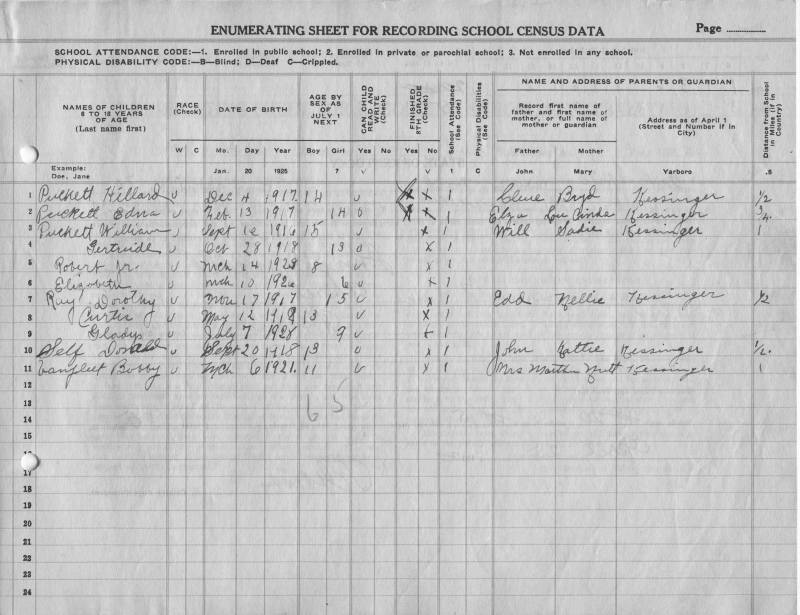 ENUMERATING SHEET FOR RECORDING SCHOOL CENSUS DATA Page
SCHOOL ATTENDANCE CODE:—1. Enrolled in public school; 2. Enrolled in private or parochial school; 3. Not enrolled in any school.
PHYSICAL DISABILITY CODE:—B—Blind; D—Deaf C—Crippled.
NAMES OF CHILDREN 6 TO 18 YEARS OF AGE (Last name first)
RACE (Check)
W C
DATE OF BIRTH
Mo. Day Year
AGE BY SEX AS OF JULY 1 NEXT
Boy Girl
CAN CHILD READ AND WRITE (Check)
Yes No
FINISHED 8TH GRADE (Check)
Yes No
School Attendance (See Code)
1
Physical Disabilities (See Code)
C
NAME AND ADDRESS OF PARENTS OR GUARDIAN
Record first name of father and first name of mother, or full name of mother or guardian
Father Mother
Address as of April 1 (Street and Number if in City)
Distance from School in Miles (if in Country)
Example: Doe, Jane Jan. 20 1925 7 √ √ John Mary Yarboro .5
1 Puckett Hillard v Dec 4 1917 14 v x 1 Byrd Kessinger 1/2
2 Puckett Edna v Feb. 13 1917 14 v x 1 Kessinger 3/4
3 Puckett William v Sept 1916 15 v x 1 Will Sadie Kessinger 1
4 Gertrude v Oct 28 1918 13 v x 1
5 Robert Jr. v Mch 14 8 v x 1
6 Elizabeth v Mch 10 6 v x 1
7 Ray Dorothy v Nov 17 1917 15 v x 1 Edd Nellie Kessinger 1/2
8 Curtis v May 12 13 v x 1
9 Gladys v July 7 9 v x 1
10 Self Donald v Sept 20 1918 13 v x 1 John Hattie Kessinger 1/2.
11 Vanfleet Bobby v Mch 6 1921. 11 v x 1 Mrs Martha Nutt Kessinger 1
12
13 6 5
14
15
17
18
19
20
21
22
23
24